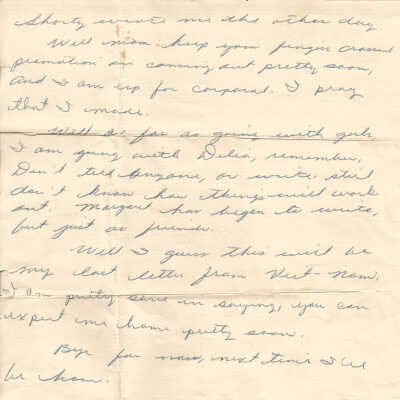 Shorty wrote me the other day.
Well mom keep your fingers crossed
promotion are coming out pretty soon,
and I am up for corporal. I pray
that I made.
Well as far as going with girls,
I am going with Delia, remember,
Don't tell anyone, or write. still
don't know how things will work
out. Margaret has began to write,
but just as friends.
Well I guess this will be
my last letter from Viet-Nam.
I am pretty sure in saying, you can
expect me home pretty soon.
Bye for now, next time I'll
be home.